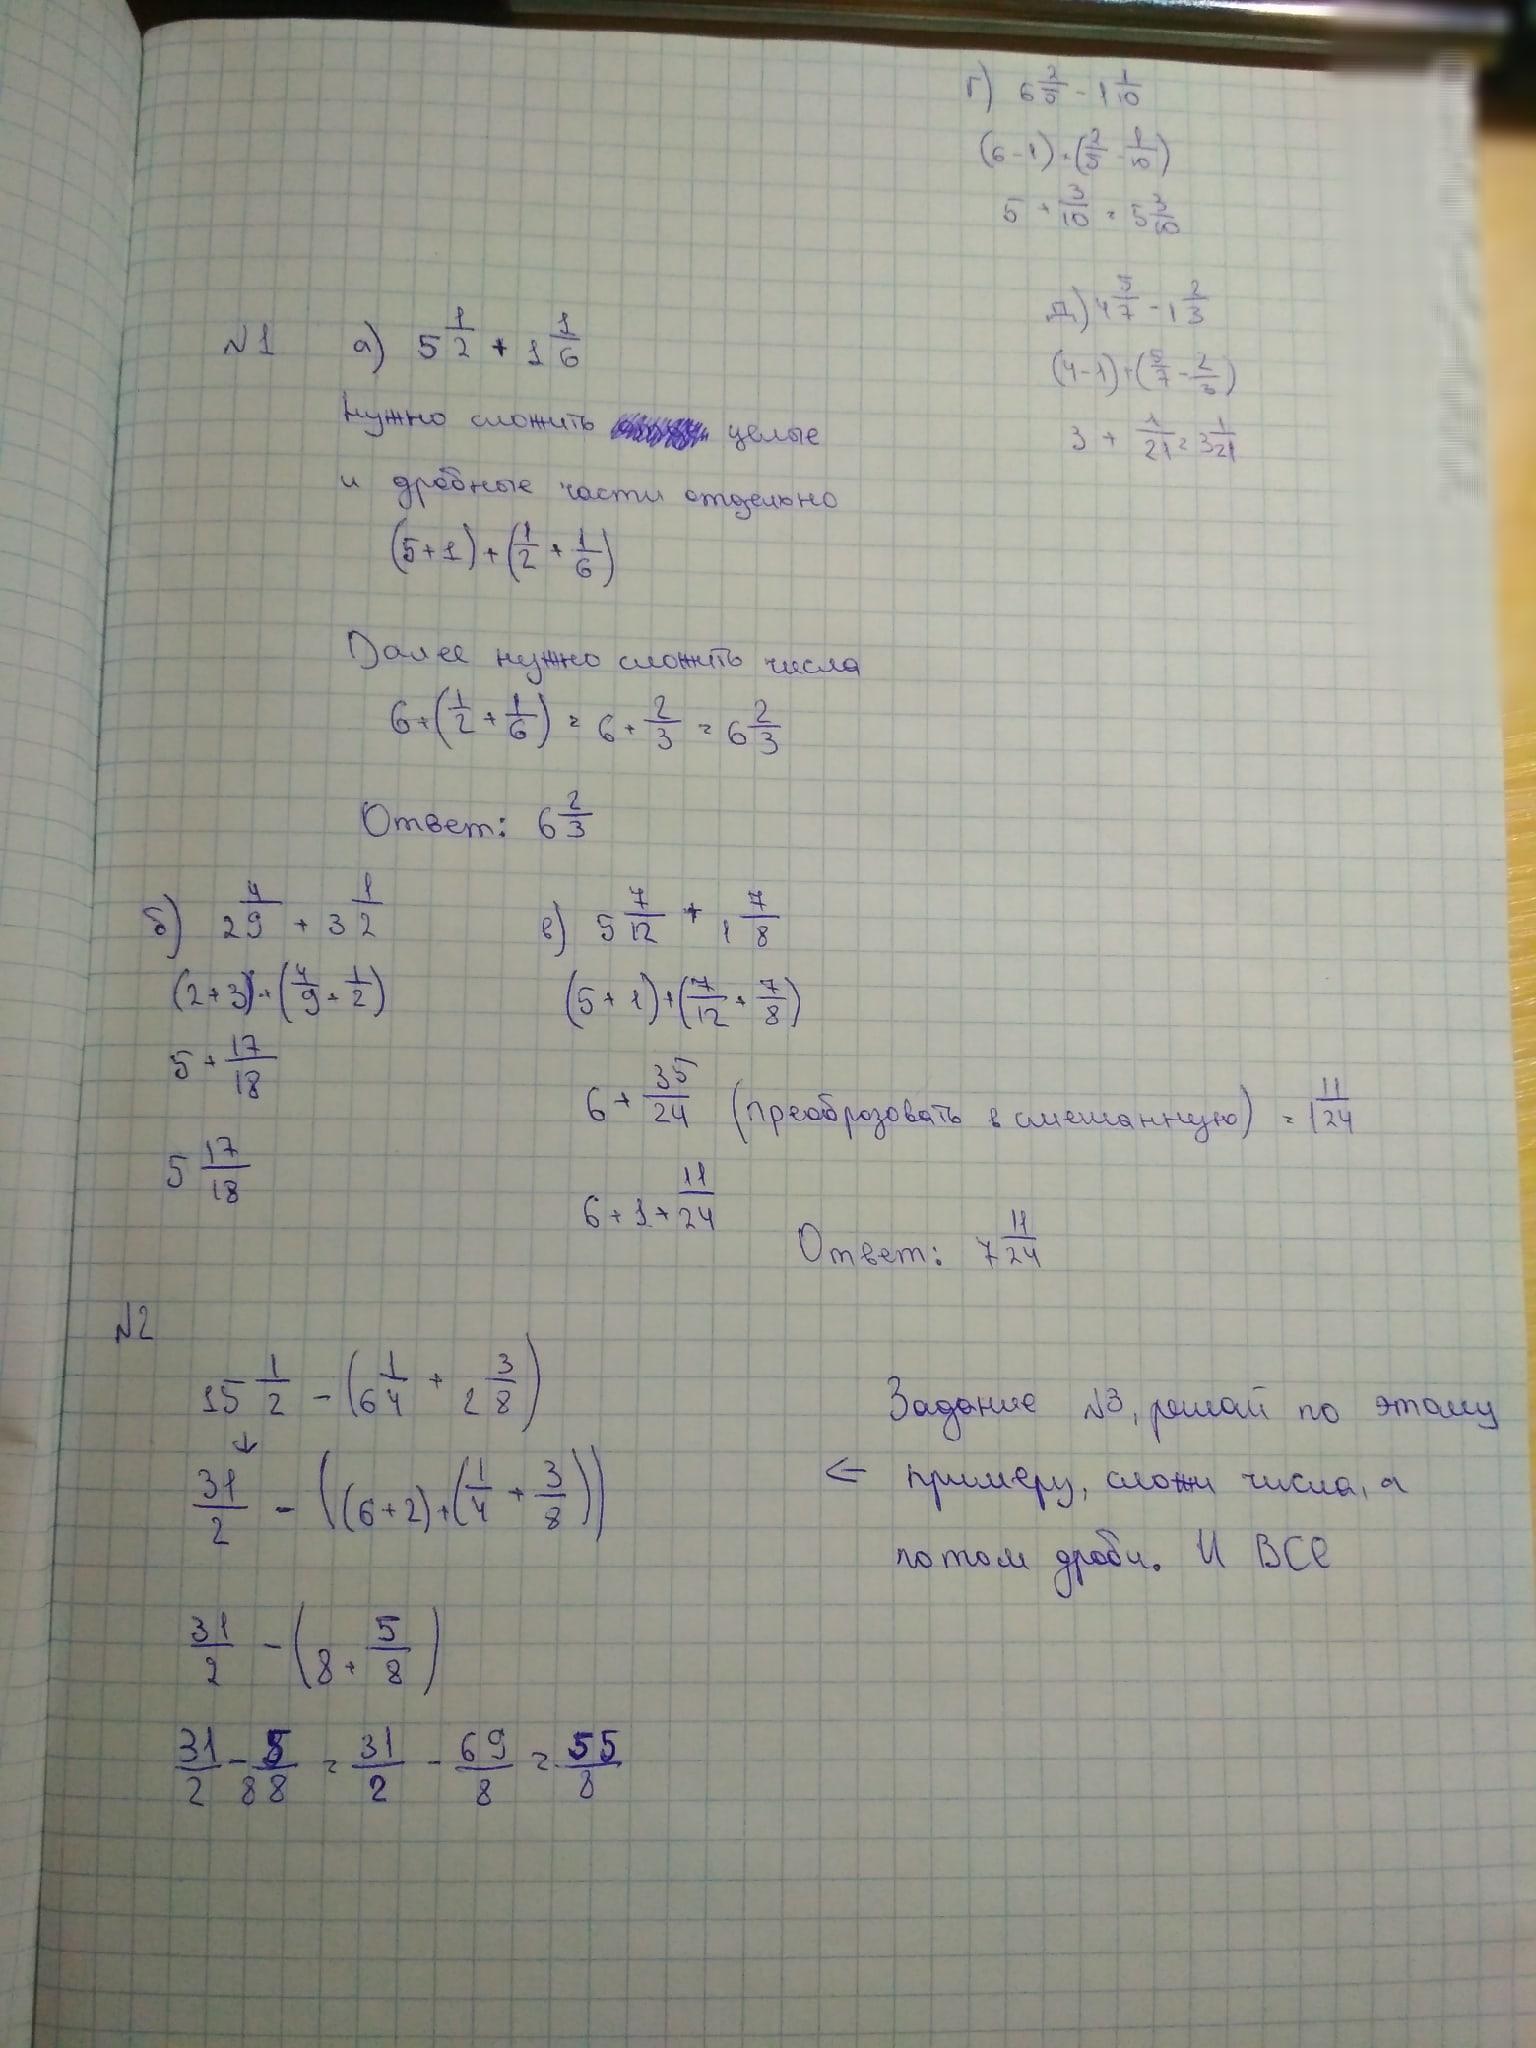 г) 6 2/5 - 1 1/10
(6-1)+(2/5-1/10)
5 + 3/10 = 5 3/10
д) 4 5/7 - 1 2/3
(4-1)+(5/7-2/3)
3 + 1/21 = 3 1/21
№1 а) 5 1/2 + 1 1/6
Нужно сложить целые
и дробные части отдельно
(5+1)+(1/2+1/6)
Далее нужно сложить числа
6+(1/2+1/6) = 6+2/3 = 6 2/3
Ответ: 6 2/3
б) 2 4/9 + 3 1/2
(2+3)+(4/9+1/2)
5+17/18
5 17/18
в) 5 7/12 + 1 7/8
(5+1)+(7/12+7/8)
6+35/24 (преоброзовать в смешанную) = 1 11/24
6+1+11/24
Ответ: 7 11/24
№2
15 1/2 - (6 1/4 + 2 3/8)
↓
31/2 - ((6+2)+(1/4+3/8))
31/2 - (8+5/8)
31/2 - 8 5/8 = 31/2 - 69/8 = 55/8
Задание №3, решай по этому
← примеру, сложи числа, а
потом дроби. И ВСЕ